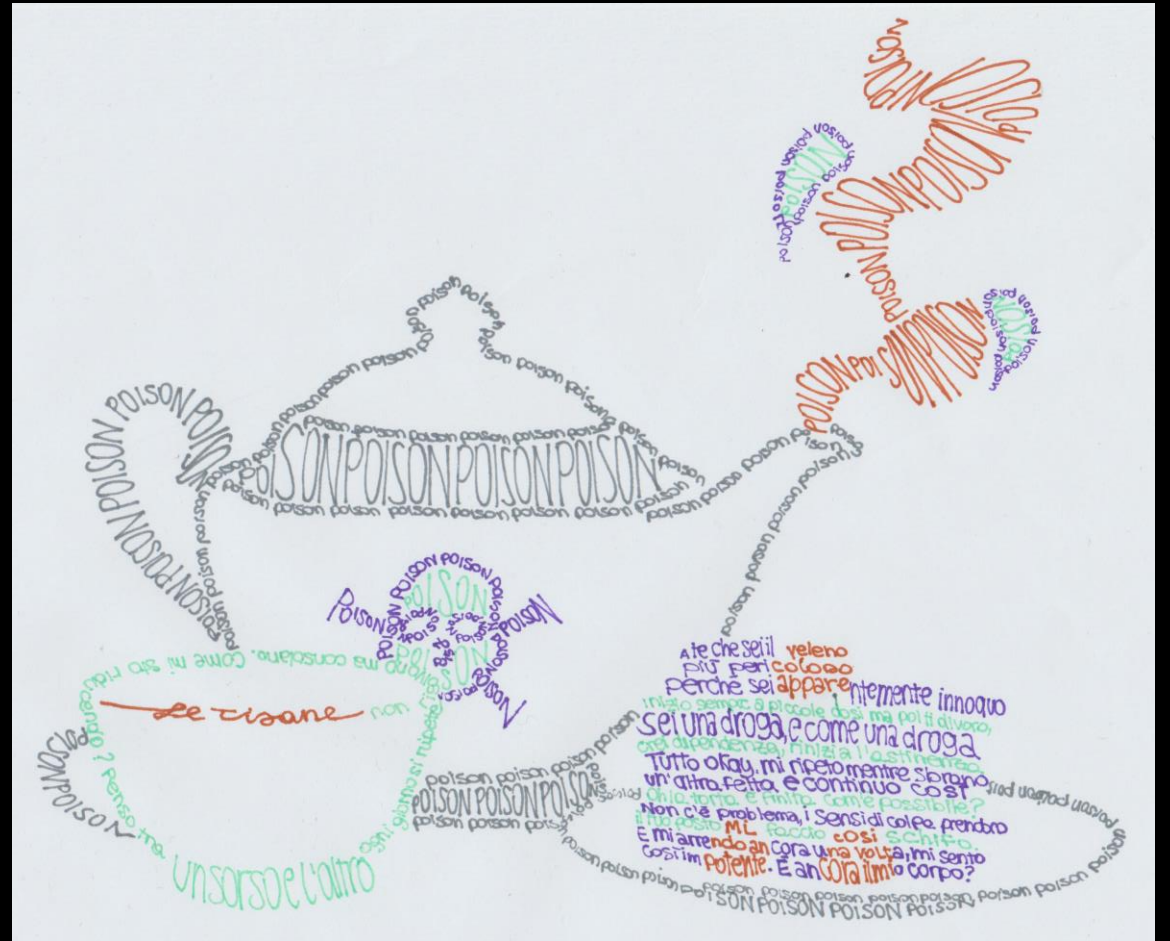 POISON POISON POISON POISON
POISON POISON POISON POISON
POISON POISON
poison poison poison poison
POISON POISON POISON POISON
poison poison poison poison
POISON POISON POISON
Le tisane non
ma consolano. Come mi sto riducendo? penso tra
un sorso e l'altro
A te che sei il veleno
più pericoloso
perché sei apparentemente innoquo
inizio sempre a piccole dosi ma poi ti divoro,
sei una droga, e come una droga
crei dipendenza, rinizia l'astinenza.
Tutto okay, mi ripeto mentre sbrano
un'altra fetta e continuo così
Ohia. torta. è finita. com'è possibile?
Non c'è problema, i sensi di colpa prendono
il tuo posto Mi faccio così schifo.
E mi arrendo ancora una volta, mi sento
così impotente. È ancora il mio corpo?
poison poison poison poison
POISON POISON POISON POISON